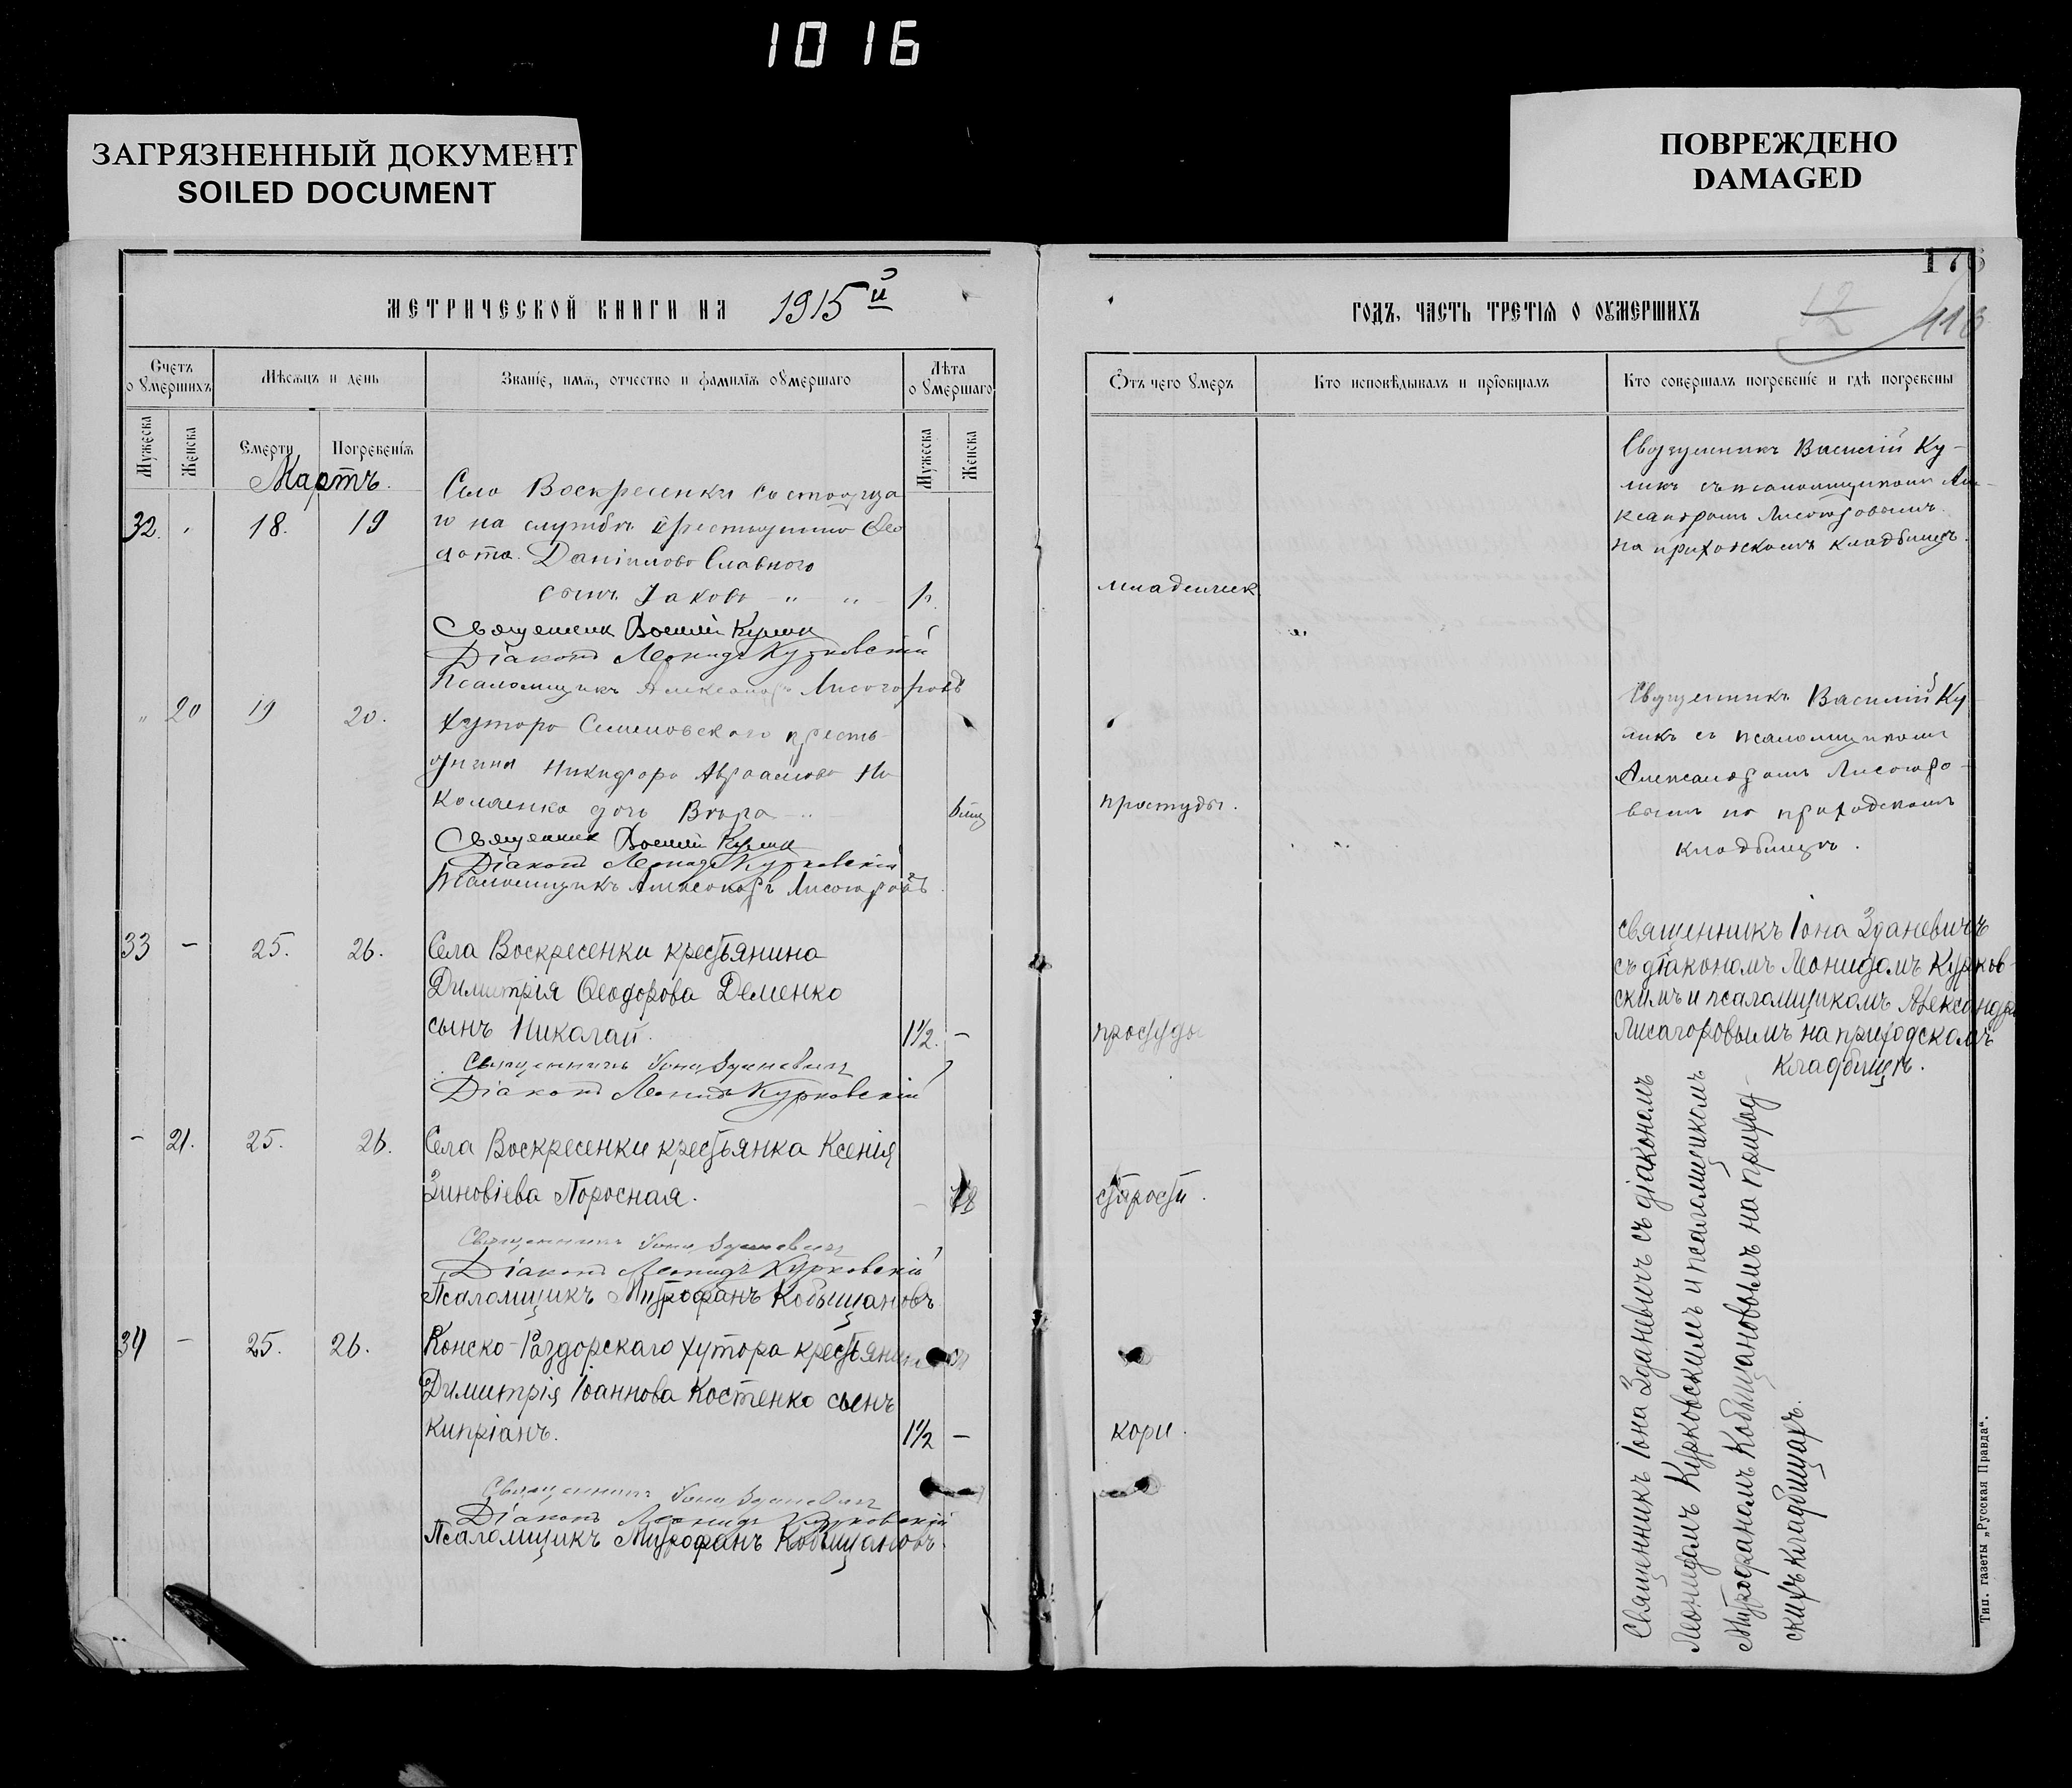 1016
ЗАГРЯЗНЕННЫЙ ДОКУМЕНТ
SOILED DOCUMENT
ПОВРЕЖДЕНО
DAMAGED
МЕТРИЧЕСКОЙ КНИГИ НА 1915й
Счетъ оумершихъ
Мѣсяцъ и день
Званіе, имя, отчество и фамилія оумершаго
Лѣта оумершаго
Мужеска
Женска
Смерти
Погребенія
Мужеска
Женска
Мартъ.
32. " 18. 19
Села Воскресенки состояща
го на службѣ крестьянина Ѳео
дота Даніилова Славного
сынъ Іаковъ " "
Священник Василій Кулик
Діаконъ Леонидъ Курковскій
Псаломщикъ Александръ Лисогоровъ
" 20 19 20.
Хутора Семеновского кресть
янина Никифора Авраамова Ни
коленко дочь Вѣра "
Священник Василій Кулик
Діаконъ Леонидъ Курковскій
Псаломщикъ Александръ Лисогоровъ
33 - 25. 26.
Села Воскресенки крестьянина
Димитрія Ѳеодорова Деменко
сынъ Николай. 1½. -
Священникъ Іона Зданевич
Діаконъ Леонидъ Курковскій
- 21. 25. 26.
Села Воскресенки крестьянка Ксенія
Зиновіева Поросная. - 78
Священникъ Іона Зданевич
Діаконъ Леонидъ Курковскій
Псаломщикъ Митрофанъ Кобыщановъ
34 - 25. 26.
Конско-Раздорскаго хутора крестьянина
Димитрія Іоаннова Костенко сынъ
Кипріанъ. 1½ -
Священникъ Іона Зданевич
Діаконъ Леонидъ Курковскій
Псаломщикъ Митрофанъ Кобыщановъ.
176
ГОДЪ, ЧАСТЬ ТРЕТІЯ О ОУМЕРШИХЪ
Отъ чего умеръ
Кто исповѣдывалъ и пріобщалъ
Кто совершалъ погребеніе и гдѣ погребены
младенческ
Священникъ Василій Ку-
ликъ съ псаломщикомъ Але-
ксандромъ Лисогоровымъ
на приходскомъ кладбищѣ.
простуды.
Священникъ Василій Ку
ликъ съ псаломщикомъ
Александромъ Лисогоро-
вымъ на приходскомъ
кладбищѣ.
простуды
Священникъ Іона Зданевичъ
съ діакономъ Леонидомъ Курков-
скимъ и псаломщикомъ Александр
Лисагоровымъ на приходскомъ
кладбищѣ.
старости.
кори.
Священникъ Іона Зданевичъ съ діакономъ
Леонидомъ Курковскимъ и псаломщикомъ
Митрофаномъ Кобыщановымъ на приход-
скихъ кладбищахъ.
Тип. газеты „Русская Правда“.